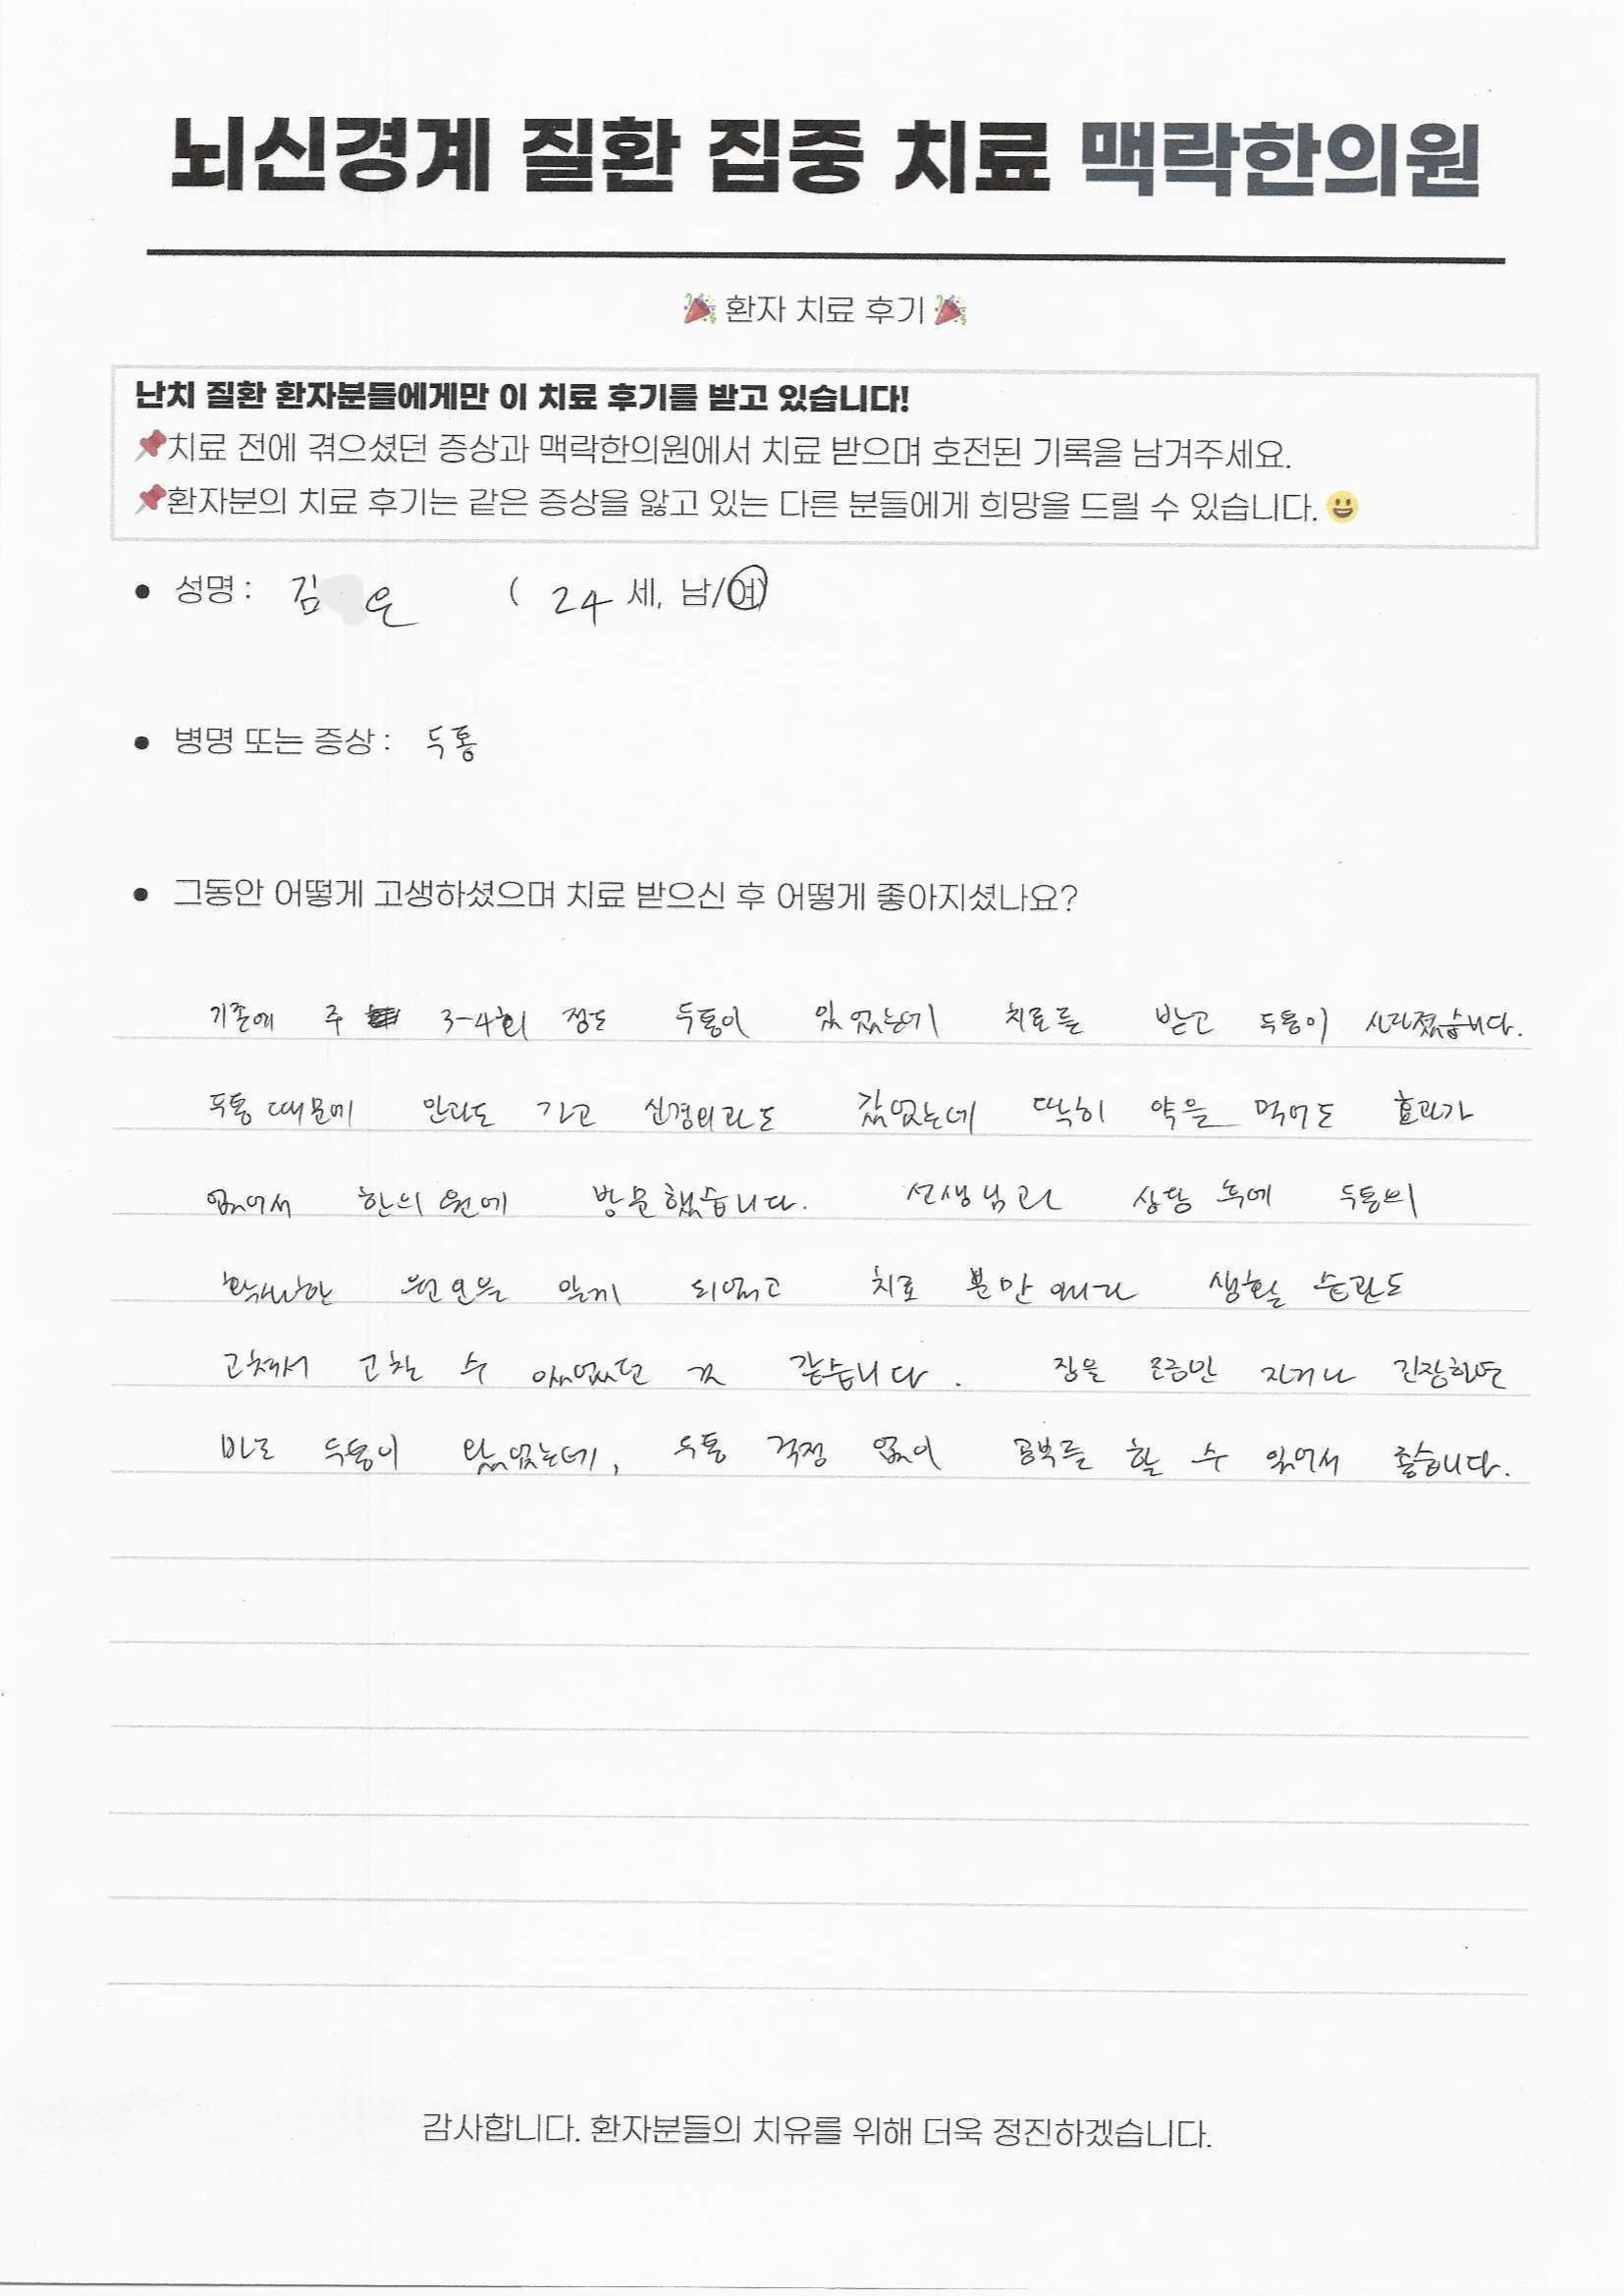 뇌신경계 질환 집중 치료 맥락한의원
🎉 환자 치료 후기 🎉
난치 질환 환자분들에게만 이 치료 후기를 받고 있습니다!
📌치료 전에 겪으셨던 증상과 맥락한의원에서 치료 받으며 호전된 기록을 남겨주세요.
📌환자분의 치료 후기는 같은 증상을 앓고 있는 다른 분들에게 희망을 드릴 수 있습니다.😀
• 성명 : 김 은 ( 24 세, 남/여)
• 병명 또는 증상 : 두통
• 그동안 어떻게 고생하셨으며 치료 받으신 후 어떻게 좋아지셨나요?
기존에 주 3-4회 정도 두통이 있었는데 치료를 받고 두통이 사라졌습니다.
두통 때문에 안과도 가고 신경외과도 갔었는데 딱히 약을 먹어도 효과가
없어서 한의원에 방문했습니다. 선생님과 상담 후에 두통의
확실한 원인을 알게 되었고 치료 뿐만 아니라 생활 습관도
고쳐서 고칠 수 있었던 것 같습니다. 잠을 조금만 자거나 긴장하면
바로 두통이 왔었는데, 두통 걱정 없이 공부를 할 수 있어서 좋습니다.
감사합니다. 환자분들의 치유를 위해 더욱 정진하겠습니다.